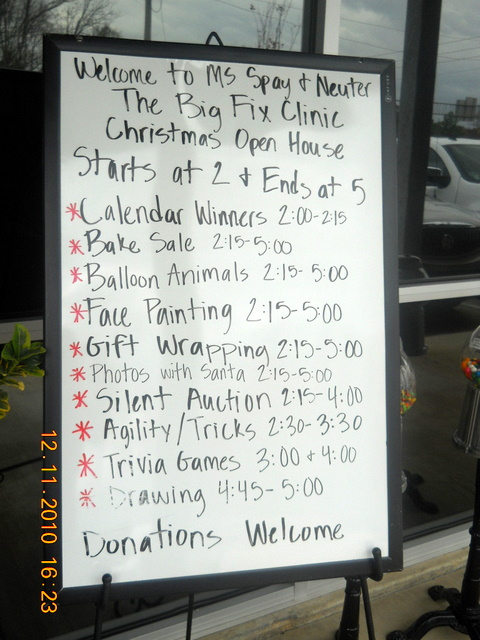 Welcome to MS Spay & Neuter
The Big Fix Clinic
Christmas Open House
Starts at 2 & Ends at 5
* Calendar Winners 2:00-2:15
* Bake Sale 2:15-5:00
* Balloon Animals 2:15-5:00
* Face Painting 2:15-5:00
* Gift Wrapping 2:15-5:00
* Photos with Santa 2:15-5:00
* Silent Auction 2:15-4:00
* Agility/Tricks 2:30-3:30
* Trivia Games 3:00 & 4:00
* Drawing 4:45-5:00
Donations Welcome
12.11.2010 16:23